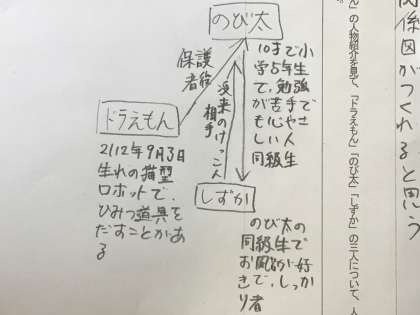 関係図がつくれると思う
ん」の人物紹介を見て、「ドラえもん」「のび太」「しずか」の三人について、人
のび太
10才で小
学5年生
で、勉強
が苦手で
も心やさ
しい人
同級生
保護
者役
未来のけっこん
相手
ドラえもん
2112年9月3日
生れの猫型
ロボットで、
ひみつ道具を
だすことがあ
る
しずか
のび太の
同級生で
お風呂が好
きで、しっか
り者